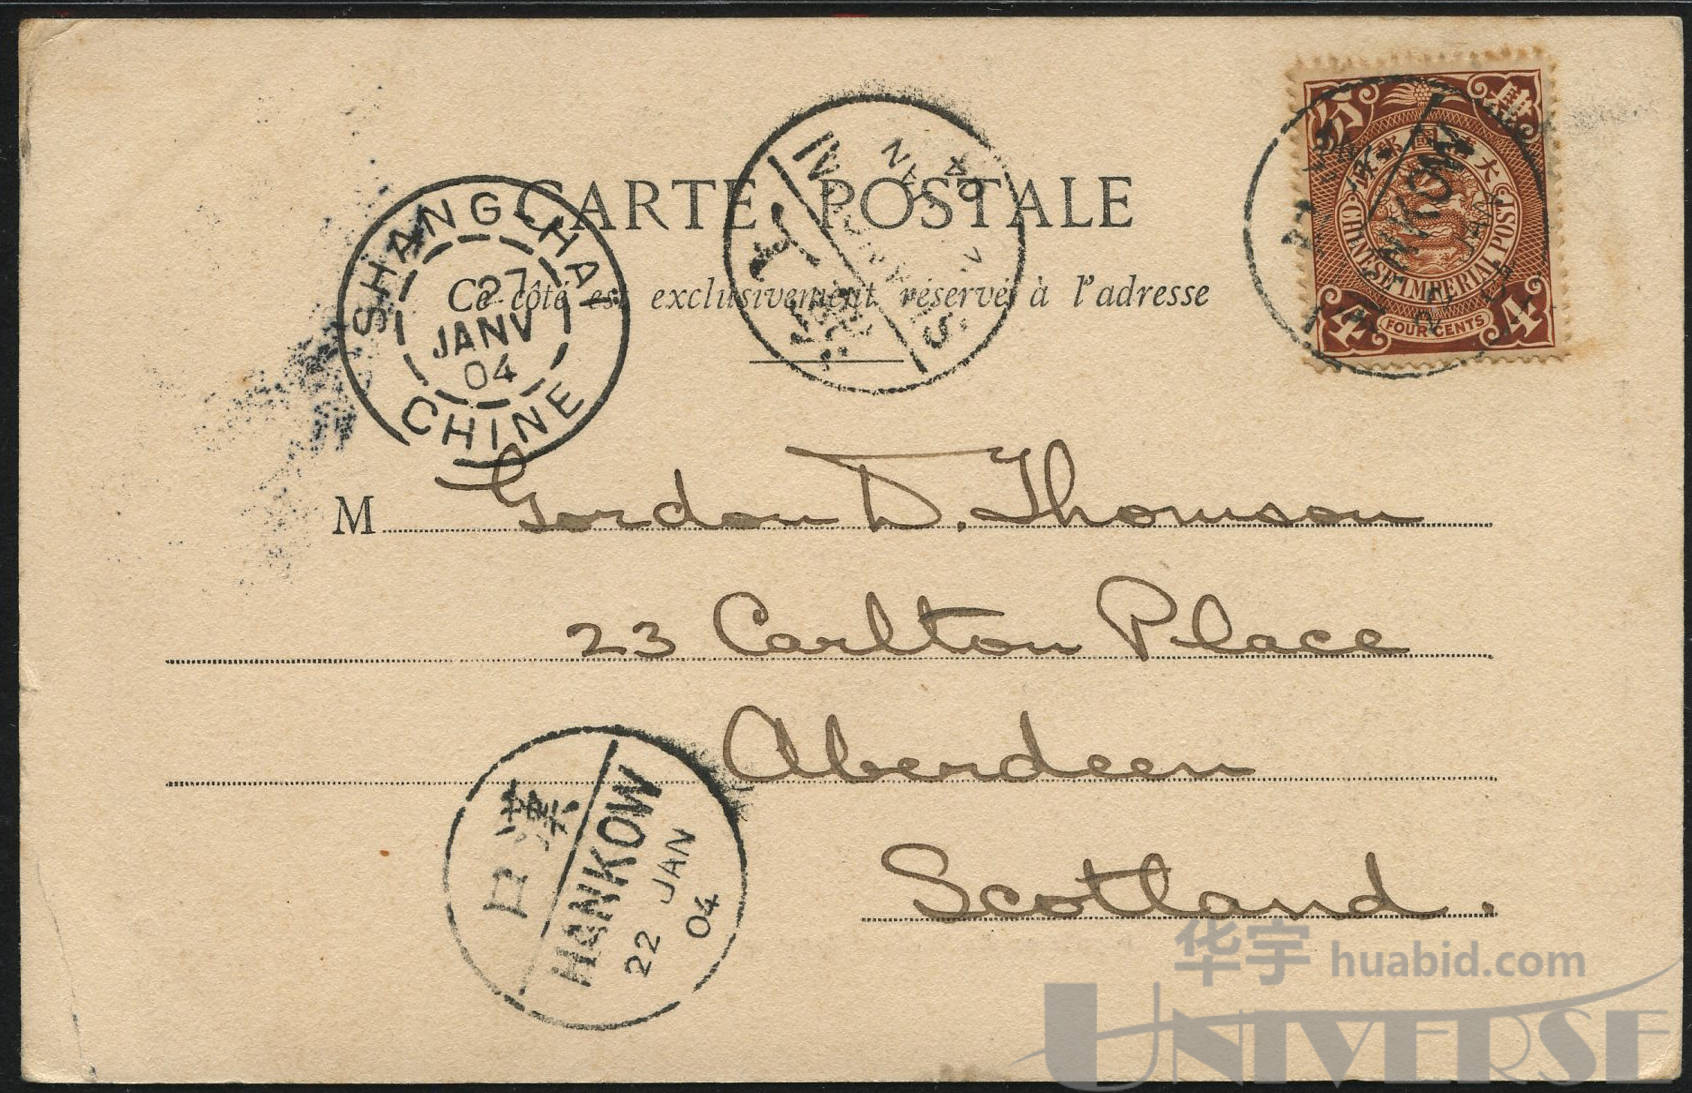 CARTE POSTALE
Ce côté est exclusivement réservé à l'adresse
SHANG-HAI
27
JANV
04
CHINE
分 肆
大清國郵政
CHINESE IMPERIAL POST
4 FOUR CENTS 4
M Gordon D. Thomson
23 Carlton Place
Aberdeen
Scotland.
漢口
HANKOW
22 JAN
04
华宇 huabid.com
UNIVERSE